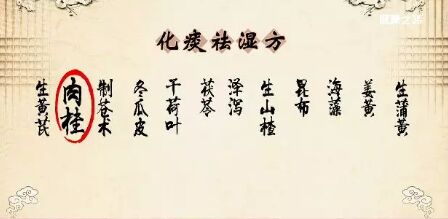 化痰祛湿方
生黄芪
肉桂
制苍术
冬瓜皮
干荷叶
茯苓
泽泻
生山楂
昆布
海藻
姜黄
生蒲黄